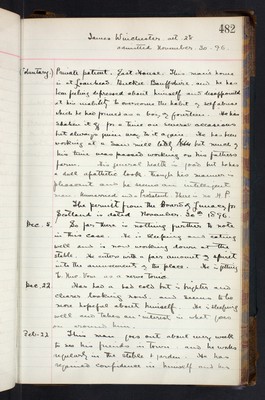 482
James Winchester aet 28
admitted November 30 - 96.
Voluntary.) Private patient. East House. This man's home
is at Loanhead Buckie Banffshire and he has
been feeling depressed about himself and disappointed
at his inability to overcome the habit of self abuse
which he had formed as a boy of fourteen. He has
shaken it off for a time on several occasions
but always given way to it again. He has been
working at a saw mill but much of
his time was passed working on his father's
farm. His general health is good but he has
a dull apathetic look though his manner is
pleasant and he seems an intelligent
man. Unmarried and Protestant. There is no H.P.
The permit from the Board of Lunacy for
Scotland is dated November 30th 1896.
Dec. 8. So far there is nothing further to note
in this case. He is sleeping and eating
well and is now working down at the
stable. He enters with a fair amount of spirit
into the amusements of the place. He is
Dec. 22. Has had a bad cold but is brighter and
clearer looking now and seems to be
more hopeful about himself. He is sleeping
well and takes an interest in what goes
on around him.
Feb. 22 This man goes out about every week
to see his friends in town and he works
regularly in the stable & garden. He has
regained confidence in himself and his